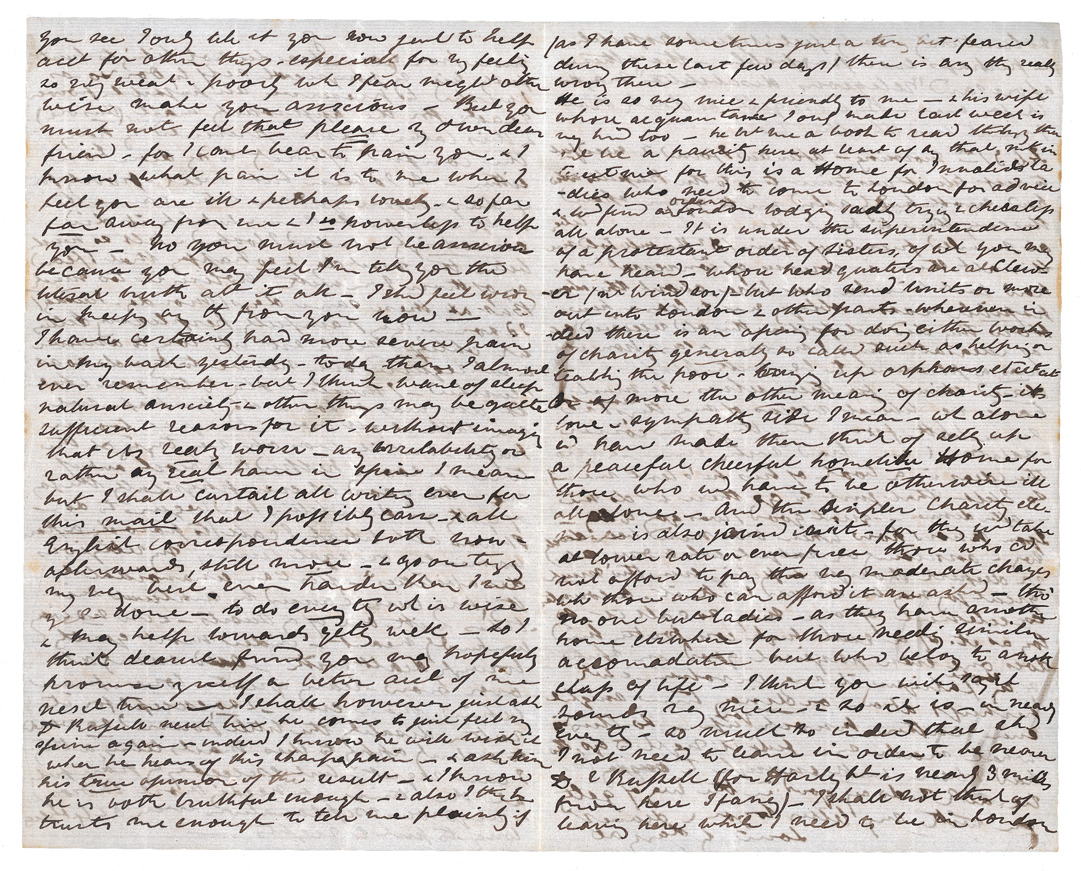 you see I only tell it you now just to help
acct for other things - especially for my feeling
so very weak & poorly wh I fear might other
wise make you anxious - But you
must not feel that please my own dear
friend - for I cant bear to pain you - & I
know what pain it is to me when I
feel you are ill & perhaps lonely - & so far
far away from me - & I so powerless to help
you - No you must not be anxious
because you may feel I'm tellg you the
literal truth abt it all - I shd feel wrong
in keepg any thg from you now -
I have certainly had more severe pain
in my back yesterday & today than I almost
ever remember - but I think want of sleep
natural anxiety & other things may be quite
sufficient reason for it - without imaging
that its really worse - any irritability or
rather any real harm in spine I mean
but I shall curtail all writg even for
this mail that I possibly can - & all
English correspondence both now &
afterwards, still more - & go on tryg
my very best even harder than I've
yet done - to do every thg wh is wise
& may help towards gettg well - So I
think dearest friend you may hopefully
promise yrself a better acct of me
next time - I shall however just ask
Dr Russell next time he comes to just feel my
spine again - indeed I know he will wish it
when he hears of this sharp pain - & ask him
his true opinion of the result - & I know
he is both truthful enough - & also I think
trusts me enough to tell me plainly if
(as I have sometimes just a tiny bit feared
during these last few days) there is any thg really
wrong there -
He is so very nice & friendly to me - & his wife
whose acquaintance I only made last week is
very kind too - he lent me a book to read
be a paucity here at least of
for this is a Home for Invalid La
-dies who need to come to London for advice
& wd find an ordinary London lodgg sadly tryg & cheerless
all alone - It is under the superintendence
of a protestant order of Sisters, of wh you may
have heard - whose head quarters are at Clew-
er (nr Windsor) - but who send units or more
out into London & other parts - wherever in
-deed there is an opeing for doing either works
of charity generally so called such as helping or
teachg the poor - bringg up orphans etc
or of more the other meaing of charity - its
love & sympathy side I mean - wh alone
wd have made them think of settg up
a peaceful cheerful homelike Home for
those who wd have to be otherwise ill
all alone - And the simpler charity etc
is also joined in it, for they wd take
at lower rate or even free those who cd
not afford to pay the very moderate charges
wh those who can afford it are asked - tho'
no one but ladies - as they have another
home elsewhere for those needg similar
accomodation but who belong to another
class of life - I think you will say it
sounds very nice & so it is - in nearly
Every thg - so much so indeed that shd
I not need to leave in order to be nearer
Dr Russell (for Harley St is nearly 3 miles
from here I fancy) - I shall not think of
leaving here while I need to be in London